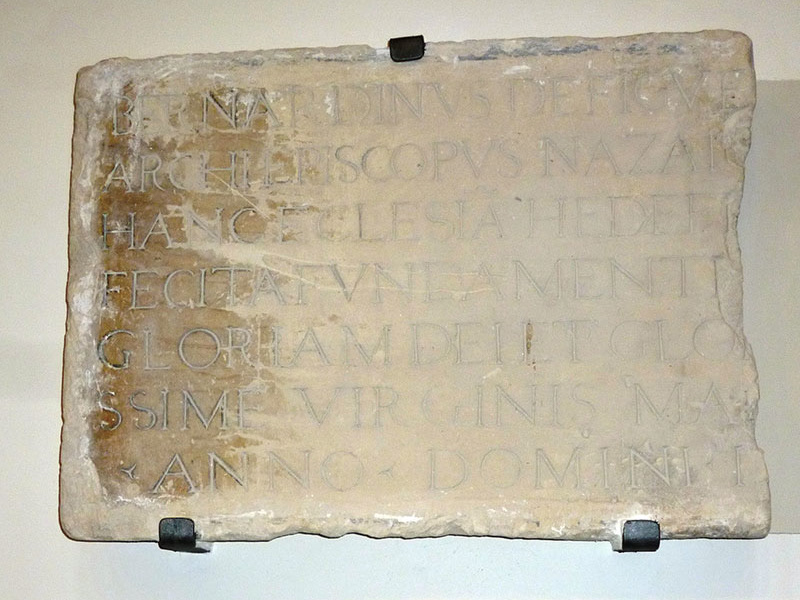 BERNARDINVS DE FIGVE
ARCHIEPISCOPVS NAZAR
HANC ECCLESIĀ HEDEFI
FECIT A FVNDAMENTI
GLORIAM DEI ET GLO
SSIME VIRGINIS MA
ANNO DOMINI I